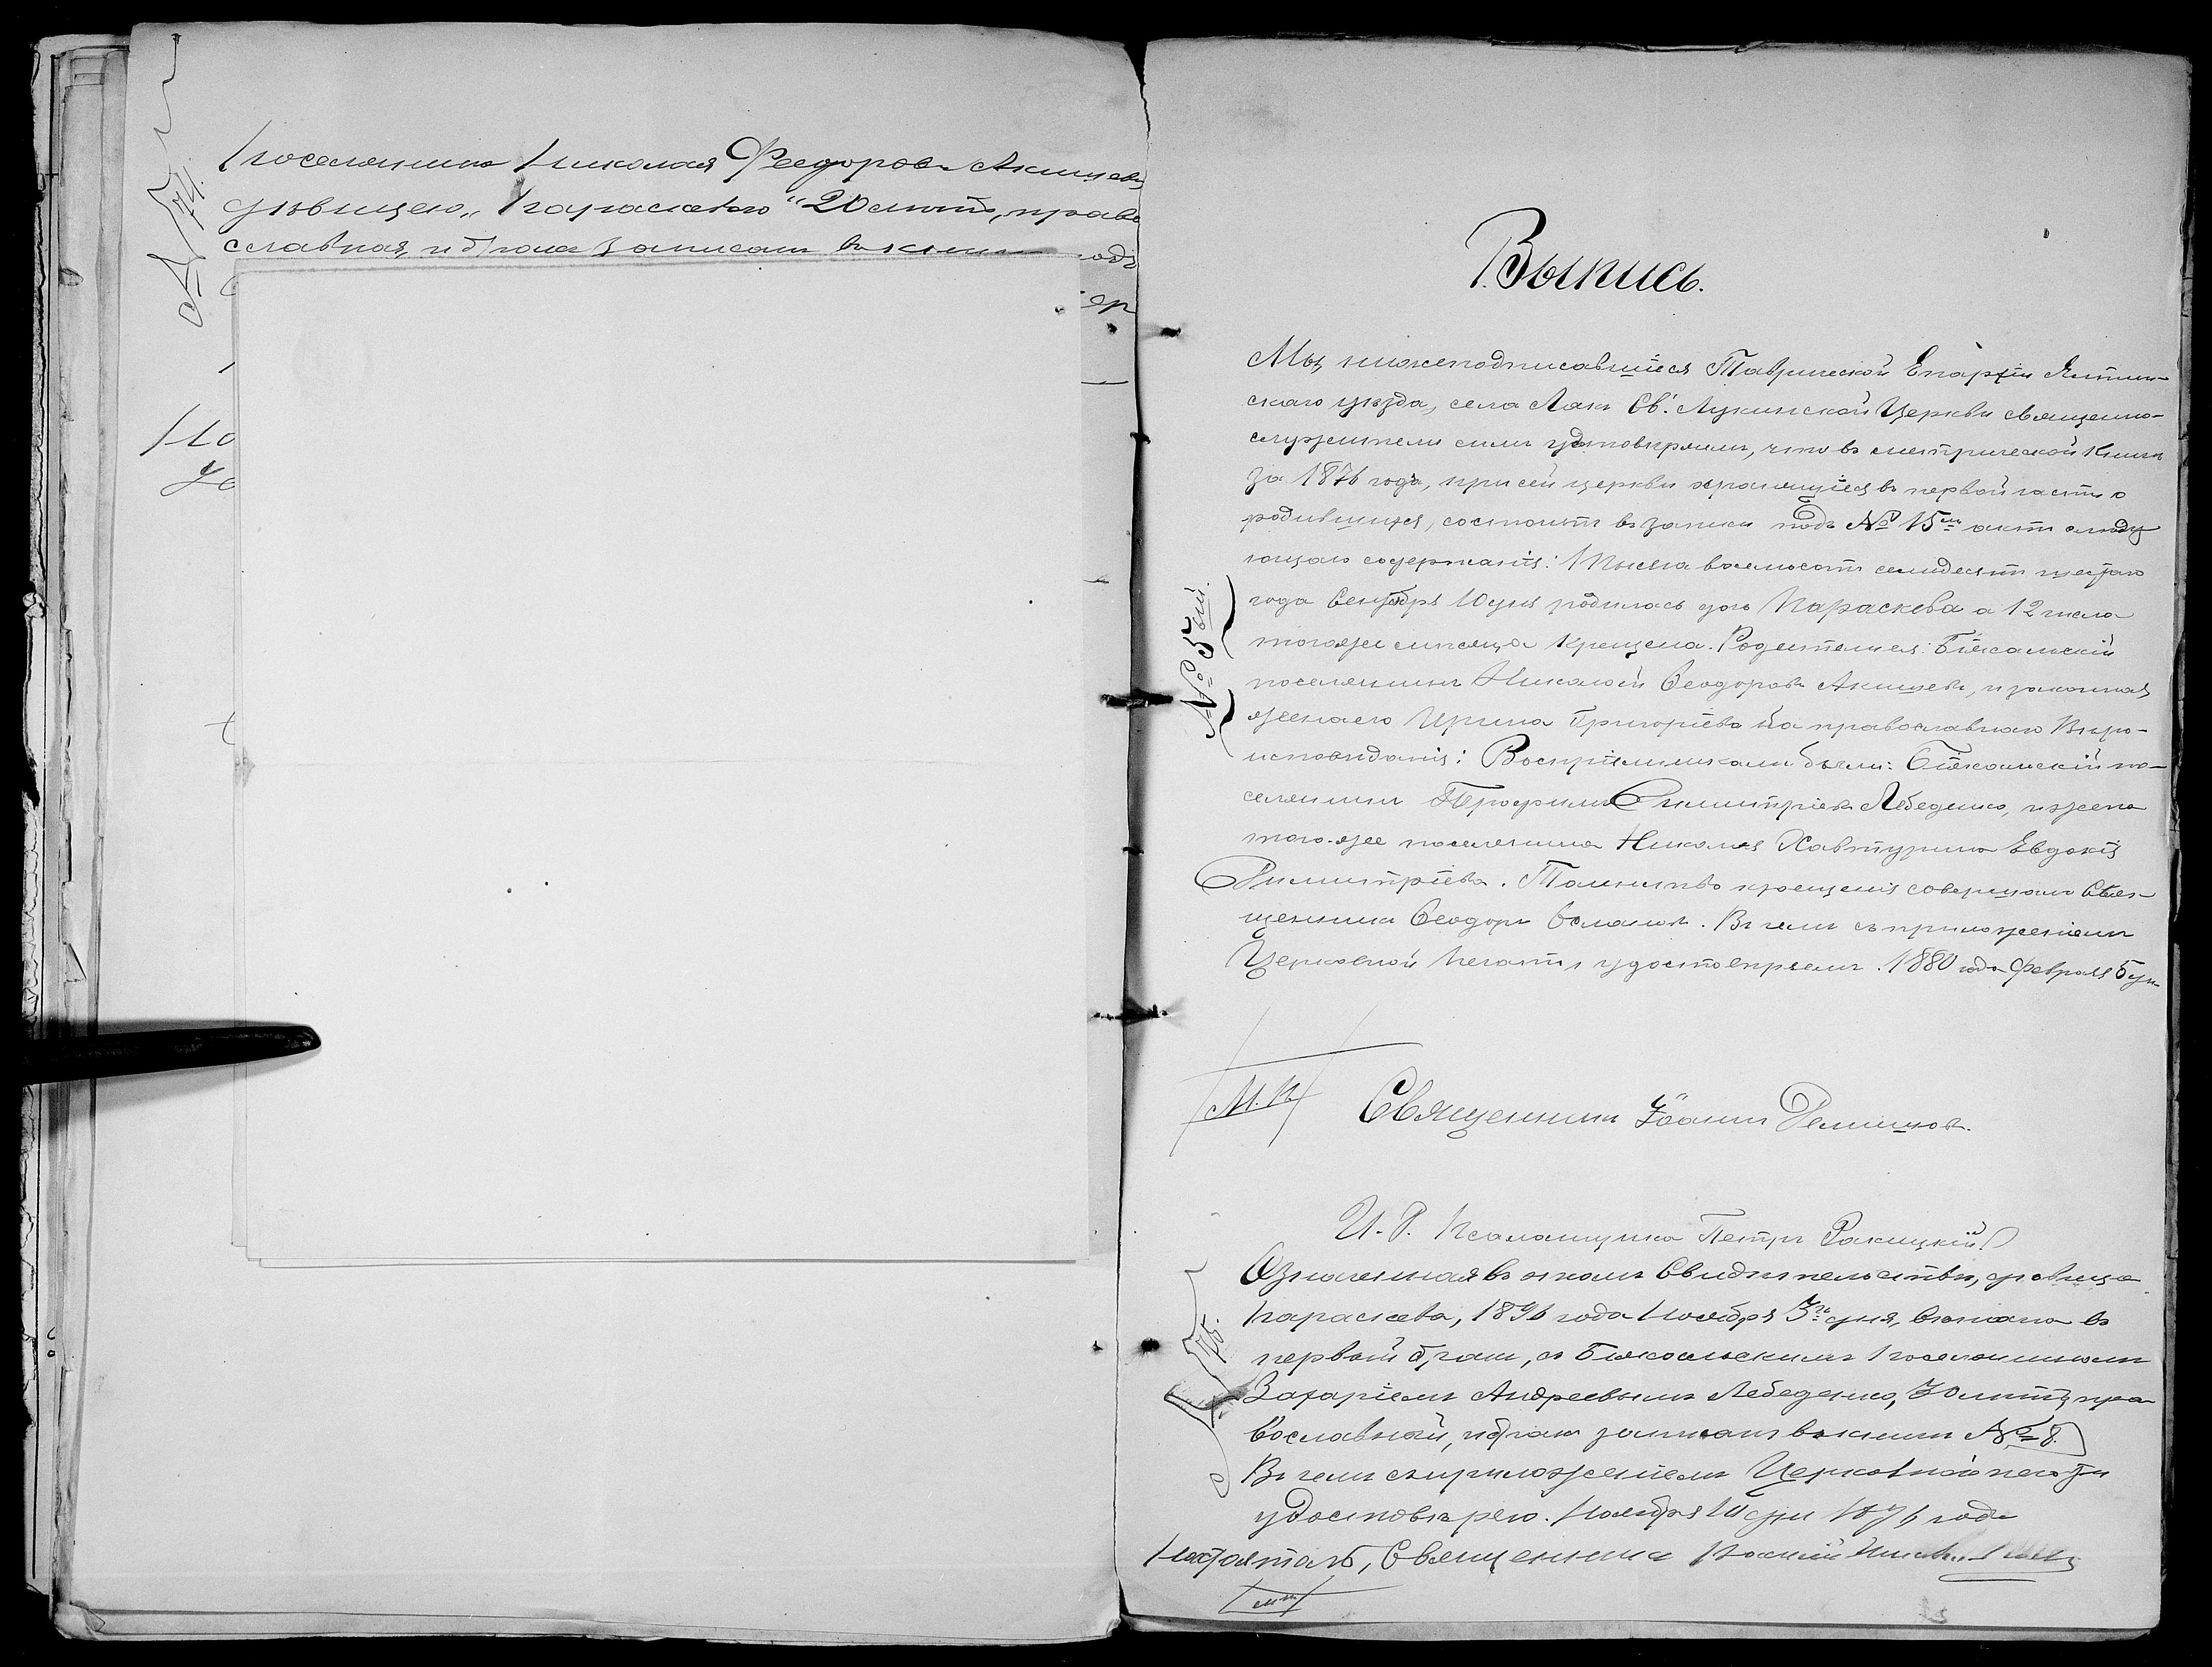 № 74.
поселянина Николая Феодорова Акишева
дѣвицею, „Параскевою“ 20 лѣтъ, право
славная, и бракъ записанъ въ книги подъ
Выпись.
Мы, нижеподписавшіеся Таврической Епархіи Ялтин-
скаго уѣзда, села Лаки Св. Лукинской Церкви священно-
служители симъ удостовѣряемъ, что въ метрической книги
за 1876 годъ, при сей церкви хранящейся въ первой части о
родившихся, состоитъ въ записи подъ № 15мъ актъ слѣду
ющаго содержанія: Тысяча восемьсотъ семидесятъ шестаго
года Сентября 10 дня родилась дочь Параскева а 12 числа
тогоже мѣсяца крещена. Родители ея: Біясалскій
поселянинъ Николай Феодоровъ Акишевъ, и законная
жена его Ирина Григоріева оба православнаго Вѣро-
исповѣданія: Воспріемниками были: Біясалскій по-
селянинъ Трофимъ Димитріевъ Лебеденко, и жена
того-же поселянина Николая Хавтурина Евдокія
Димитріева. Таинство крещенія совершалъ Свя-
щенникъ Феодоръ. Въ чемъ съ приложеніемъ
Церковной печати удостовѣряемъ. 1880 года Февраля 5 дн.
№ 5ый.
М.П.
Священникъ Іоаннъ Демишовъ.
И. д. Псаломщика Петръ Ракицкій
№ 75.
Означенная въ ономъ Свидѣтельствѣ, дѣвица
Параскева, 1896 года Ноября 3го дня, вѣнчана въ
первый бракъ, съ Біясальскимъ поселяниномъ
Захаріемъ Андреевымъ Лебеденко, 30 лѣтъ, пра-
вославный, и бракъ записанъ въ книги № 8.
Въ чемъ съ приложеніемъ Церковной печати
удостовѣряю. Ноября 10 дня 1896 года
Настоятель, Священникъ
МП